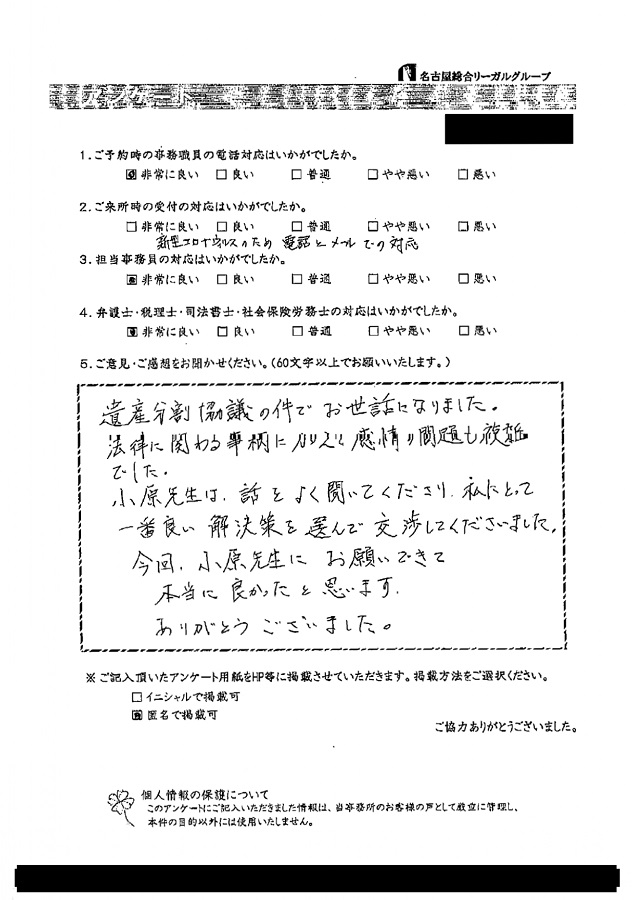 名古屋総合リーガルグループ
アンケート
1.ご予約時の事務職員の電話対応はいかがでしたか。
非常に良い □良い □普通 □やや悪い □悪い
2.ご来所時の受付の対応はいかがでしたか。
□非常に良い □良い □普通 □やや悪い □悪い
新型コロナウルスのため 電話とメールでの対応
3.担当事務員の対応はいかがでしたか。
非常に良い □良い □普通 □やや悪い □悪い
4.弁護士・税理士・司法書士・社会保険労務士の対応はいかがでしたか。
非常に良い □良い □普通 □やや悪い □悪い
5.ご意見・ご感想をお聞かせください。(60文字以上でお願いいたします。)
遺産分割協議の件でお世話になりました。
法律に関わる事柄に 感情の問題も複雑
でした。
小原先生は、話をよく聞いてくださり、私にとって
一番良い解決策を選んで交渉してくださいました。
今回、小原先生にお願いできて
本当に良かったと思います。
ありがとうございました。
※ご記入頂いたアンケート用紙をHP等に掲載させていただきます。掲載方法をご選択ください。
□イニシャルで掲載可
匿名で掲載可
ご協力ありがとうございました。
個人情報の保護について
このアンケートにご記入いただきました情報は、当事務所のお客様の声として厳正に管理し、
本件の目的以外には使用いたしません。